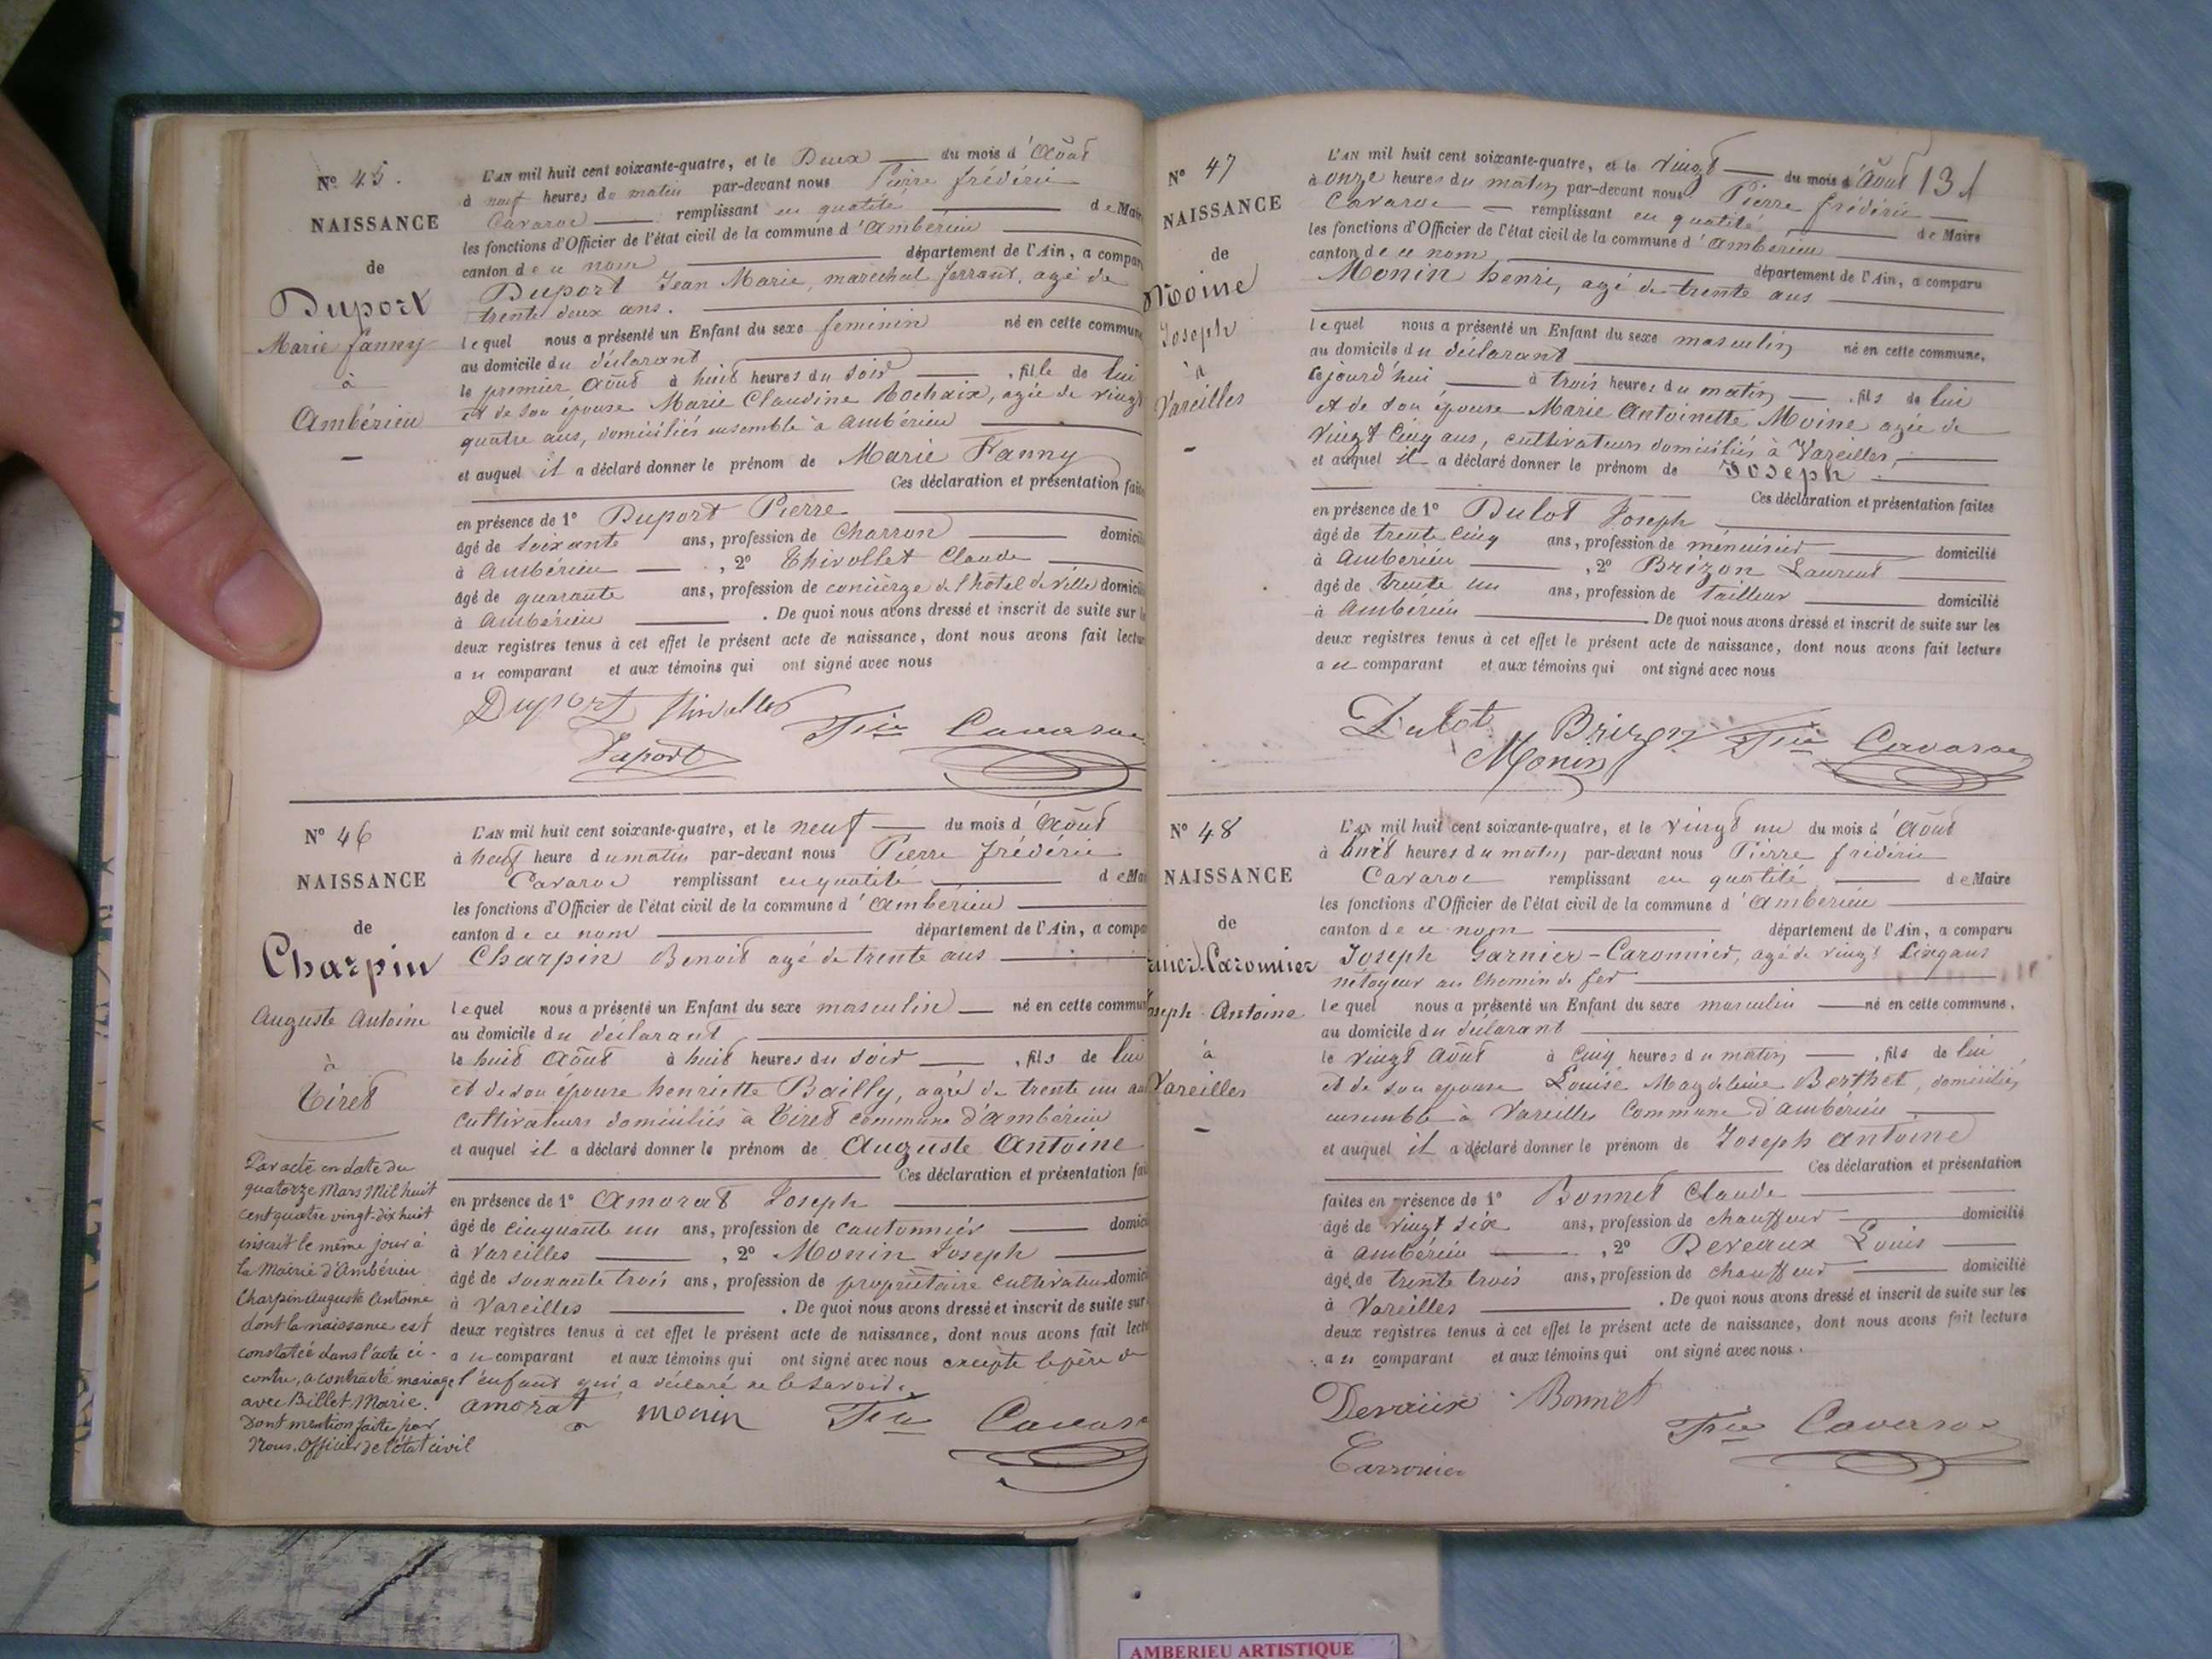 N° 45.
NAISSANCE
de
Duport
Marie fanny
à
Ambérieu
L'AN mil huit cent soixante-quatre, et le Deux du mois d'Août
à neuf heures du matin par-devant nous Pierre frédéric
Cavaroc remplissant en qualité de Mair
les fonctions d'Officier de l'état civil de la commune d'Ambérieu
canton de ce nom département de l'Ain, a compar
Duport Jean Marie, marechal ferrant, agé de
trente deux ans.
lequel nous a présenté un Enfant du sexe feminin né en cette commune
au domicile du déclarant
le premier Août à huit heures du soir, fille de lui
et de son épouse Marie Claudine Rochaix, agée de vingt
quatre ans, domiciliés ensemble à Ambérieu
et auquel il a déclaré donner le prénom de Marie Fanny
Ces déclaration et présentation faite
en présence de 1° Duport Pierre
âgé de soixante ans, profession de Charron domicil
à Ambérieu, 2° Thivollet Claude
âgé de quarante ans, profession de concièrge de l'hôtel de ville domicil
à Ambérieu. De quoi nous avons dressé et inscrit de suite sur le
deux registres tenus à cet effet le présent acte de naissance, dont nous avons fait lectur
au comparant et aux témoins qui ont signé avec nous
Duport Thivollet Fric Cavaroc
Duport
N° 46
NAISSANCE
de
Charpin
Auguste Antoine
à
Tiret
Par acte en date du
quatorze Mars Mil huit
cent quatre vingt-dix huit
inscrit le même jour à
la Mairie d'Ambérieu
Charpin Auguste Antoine
dont la naissance est
constatée dans l'acte ci-
contre, a contracté mariage
avec Billet Marie.
Dont mention faite par
Nous, Officier de l'état civil
L'AN mil huit cent soixante-quatre, et le neuf du mois d'Août
à neuf heure du matin par-devant nous Pierre frédéric
Cavaroc remplissant en qualité de Mai
les fonctions d'Officier de l'état civil de la commune d'Ambérieu
canton de ce nom département de l'Ain, a compa
Charpin Benoit agé de trente ans
lequel nous a présenté un Enfant du sexe masculin né en cette commun
au domicile du déclarant
le huit Août à huit heures du soir, fils de lui
et de son épouse henriette Bailly, agée de trente un an
cultivateurs domiciliés à Tiret commune d'Ambérieu
et auquel il a déclaré donner le prénom de Auguste Antoine
Ces déclaration et présentation fai
en présence de 1° Amorat Joseph
âgé de cinquante un ans, profession de cantonnier domici
à Vareilles, 2° Monin Joseph
âgé de soixante trois ans, profession de propriétaire cultivateur domici
à Vareilles. De quoi nous avons dressé et inscrit de suite sur
deux registres tenus à cet effet le présent acte de naissance, dont nous avons fait lectu
au comparant et aux témoins qui ont signé avec nous excepté le père de
l'enfant qui a déclaré ne le savoir.
amorat monin Fric Cavaroc
N° 47
NAISSANCE
de
Moine
Joseph
à
Vareilles
L'AN mil huit cent soixante-quatre, et le vingt du mois d'Août 13
à onze heures du matin par-devant nous Pierre frédéric
Cavaroc remplissant en qualité de Maire
les fonctions d'Officier de l'état civil de la commune d'Ambérieu
canton de ce nom département de l'Ain, a comparu
Monin henri, agé de trente ans
lequel nous a présenté un Enfant du sexe masculin né en cette commune,
au domicile du déclarant
cejourd'hui à trois heures du matin, fils de lui
et de son épouse Marie Antoinette Moine agée de
vingt cinq ans, cultivateurs domiciliés à Vareilles,
et auquel il a déclaré donner le prénom de Joseph
Ces déclaration et présentation faites
en présence de 1° Dulot Joseph
âgé de trente cinq ans, profession de ménuisier domicilié
à Ambérieu, 2° Brizon Laurent
âgé de trente un ans, profession de tailleur domicilié
à Ambérieu. De quoi nous avons dressé et inscrit de suite sur les
deux registres tenus à cet effet le présent acte de naissance, dont nous avons fait lecture
au comparant et aux témoins qui ont signé avec nous
Dulot Brizon Fric Cavaroc
Monin
N° 48
NAISSANCE
de
rnier-Caronnier
oseph Antoine
à
Vareilles
L'AN mil huit cent soixante-quatre, et le vingt un du mois d'Août
à huit heures du matin par-devant nous Pierre frédéric
Cavaroc remplissant en qualité de Maire
les fonctions d'Officier de l'état civil de la commune d'Ambérieu
canton de ce nom département de l'Ain, a comparu
Joseph Garnier-Caronnier, agé de vingt cinq ans
nétoyeur au chemin de fer
lequel nous a présenté un Enfant du sexe masculin né en cette commune,
au domicile du déclarant
le vingt Août à cinq heures du matin, fils de lui
et de son épouse Louise Magdeleine Berthet, domiciliés
ensemble à Vareilles Commune d'Ambérieu
et auquel il a déclaré donner le prénom de Joseph Antoine
Ces déclaration et présentation
faites en présence de 1° Bonnet Claude
âgé de vingt six ans, profession de chauffeur domicilié
à Ambérieu, 2° Deveaux Louis
âgé de trente trois ans, profession de chauffeur domicilié
à Vareilles. De quoi nous avons dressé et inscrit de suite sur les
deux registres tenus à cet effet le présent acte de naissance, dont nous avons fait lecture
au comparant et aux témoins qui ont signé avec nous.
Devaux Bonnet
Fric Cavaroc
Carronier
AMBERIEU ARTISTIQUE